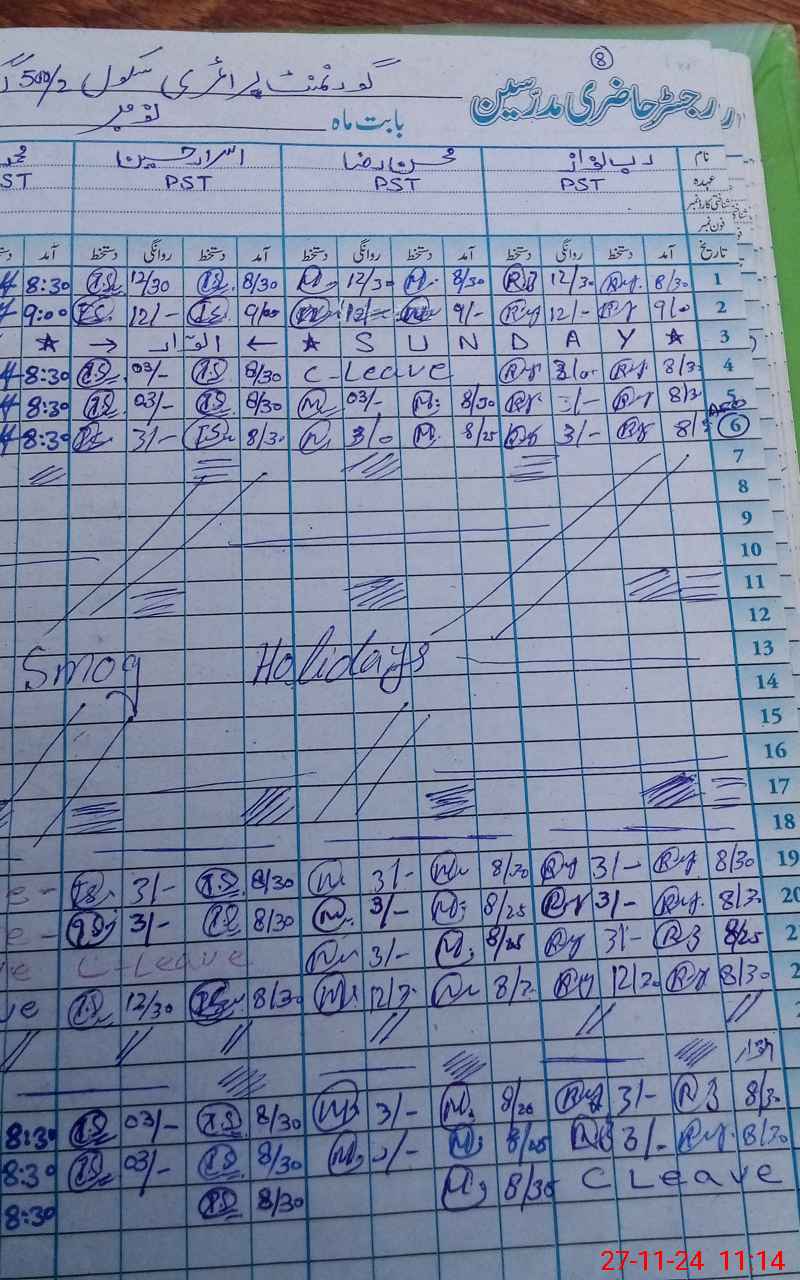 8
رجسٹر حاضری مدرسین
گورنمنٹ پرائمری سکول 500/2
بابت ماہ نومبر
نام رب نواز محسن رضا اسرار حسین محمد
عہدہ PST PST PST PST
شناختی کارڈ نمبر
فون نمبر
تاریخ آمد دستخط روانگی دستخط آمد دستخط روانگی دستخط آمد دستخط روانگی دستخط آمد
8:30 I.S 12/30 I.S 8/30 M 12/30 M 8/30 R 12/30 R 8/30 1
9:00 I.S 12/- I.S 9/00 M 12/- M 9/- R 12/- R 9/0 2
★ → اتوار ← ★ S U N D A Y ★ 3
8:30 I.S 03/- I.S 8/30 C-Leave R 3/0 R 8/3 4
8:30 I.S 03/- I.S 8/30 M 03/- M 8/30 R 3/- R 8/3 5
8:30 I.S 3/- I.S 8/30 M 3/0 M 8/25 R 3/- R 8/3 6
7
8
9
10
11
12
Smog Holidays 13
14
15
16
17
18
I.S 3/- I.S 8/30 M 3/- M 8/30 R 3/- R 8/30 19
I.S 3/- I.S 8/30 M 3/- M 8/25 R 3/- R 8/3 20
C-Leave M 3/- M 8/25 R 3/- R 8/25 2
I.S 12/30 I.S 8/30 M 12/3 M 8/3 R 12/30 R 8/30 2
// // // // // //
اتوار
8:30 I.S 03/- I.S 8/30 M 3/- M 8/20 R 3/- R 8/30
8:30 I.S 03/- I.S 8/30 M 3/- M 8/25 R 3/- R 8/30
8:30 I.S 8/30 M 8/35 C Leave
27-11-24 11:14